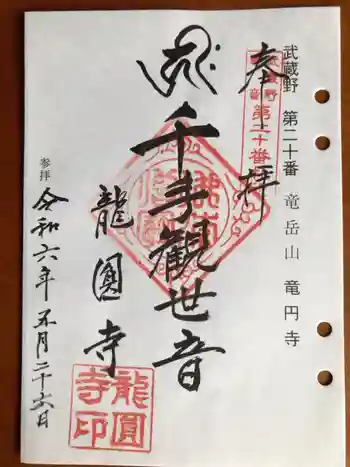 武蔵野 第二十番 竜岳山 竜円寺
奉拝
武蔵野
観音
第二十番
千手観世音
龍圓寺
龍圓
寺印
参拝
令和六年 五月二十六日